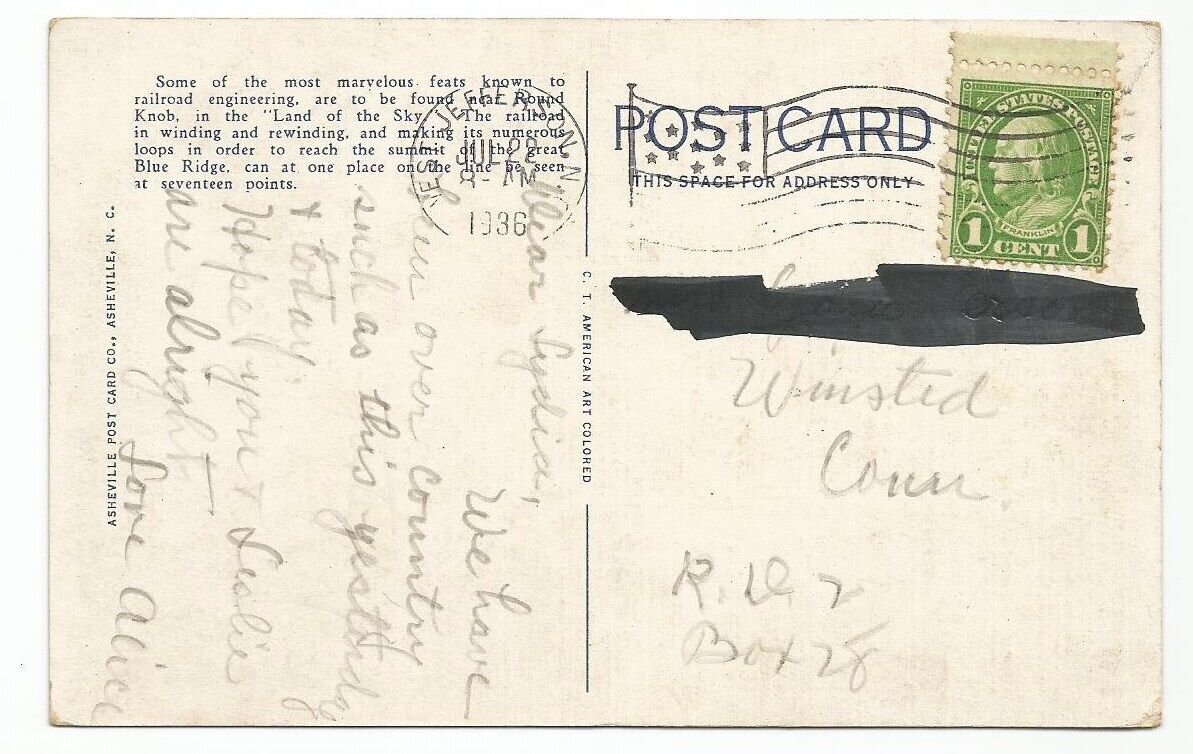 Some of the most marvelous feats known to
railroad engineering, are to be found near Round
Knob, in the "Land of the Sky." The railroad
in winding and rewinding, and making its numerous
loops in order to reach the summit of the great
Blue Ridge, can at one place on the line be seen
at seventeen points.
ASHEVILLE POST CARD CO., ASHEVILLE, N. C.
C. T. AMERICAN ART COLORED
WEST JEFFERSON
JUL 22
8-AM
1936
N.C.
POST CARD
THIS SPACE FOR ADDRESS ONLY
UNITED STATES POSTAGE
FRANKLIN
1 CENT 1
Dear Lydia,
We have
been over country
such as this yesterday
& today.
Hope you & Leslie
are alright
Love Alice
Winsted
Conn.
R.D. 2
Box 28